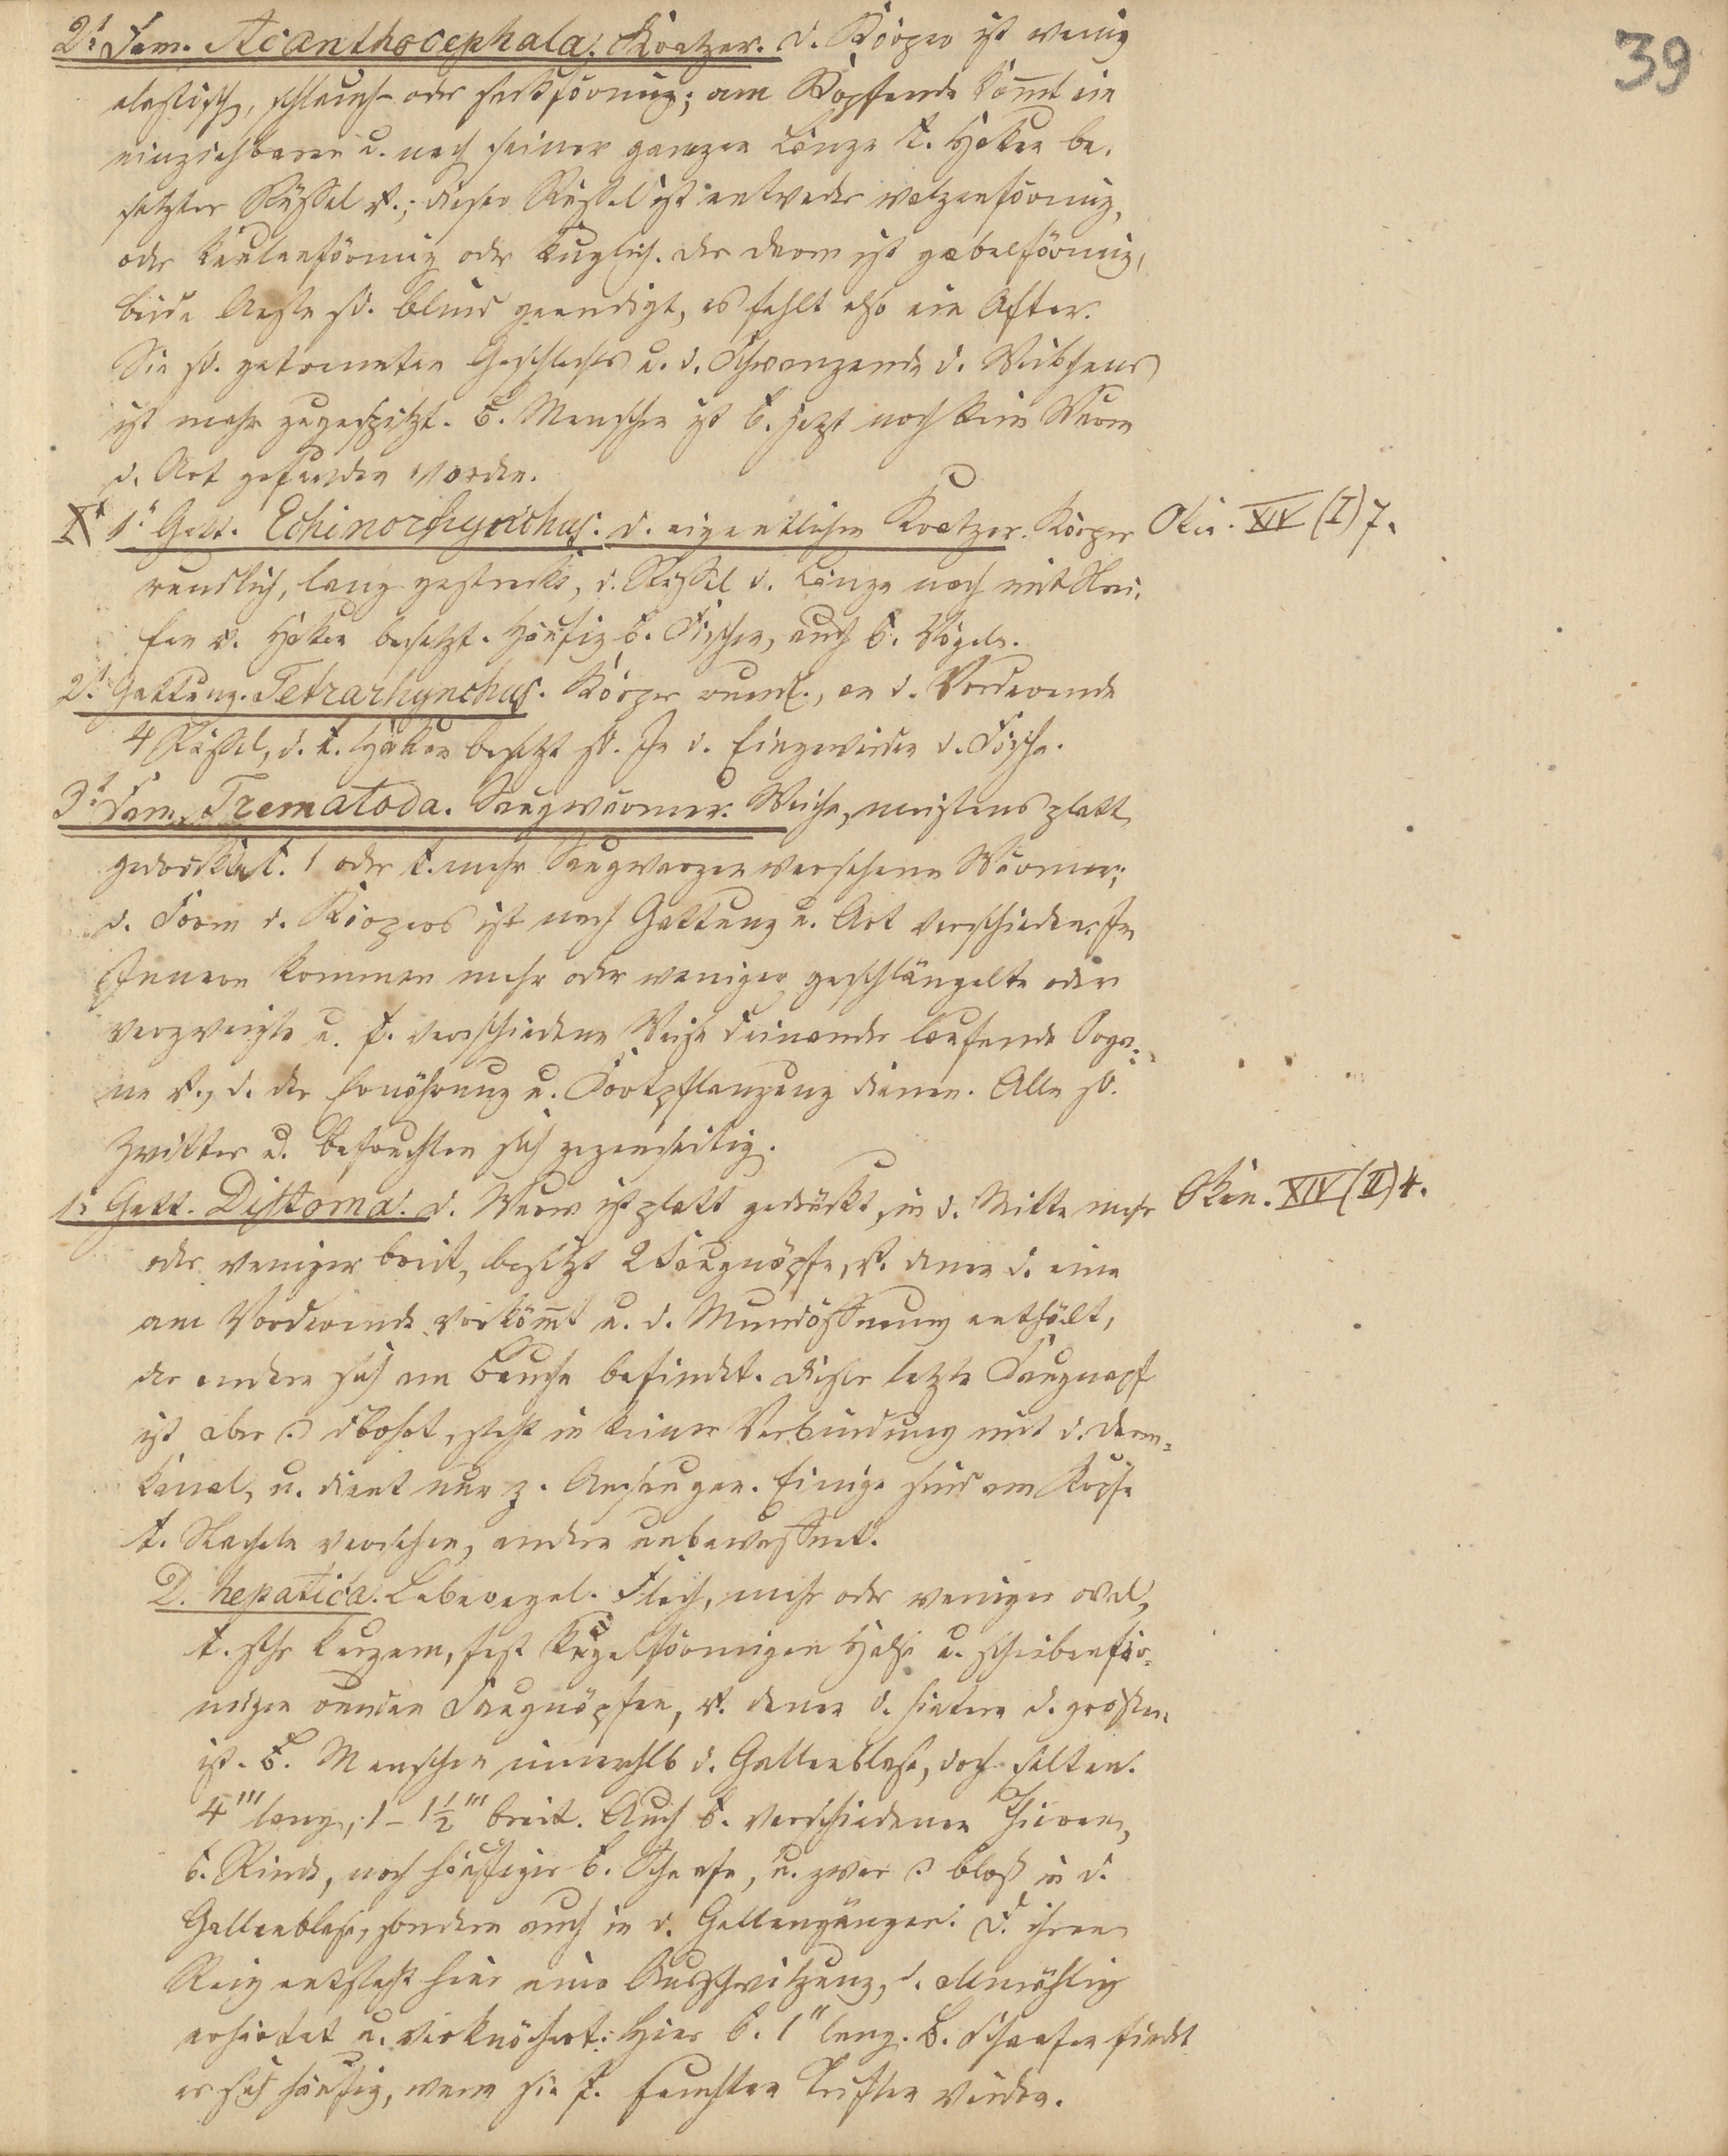 39
2t Fam. Acanthocephala. Kratzer. d. Körper ist wenig
elastisch, schlauch- oder sackförmig; am Kopfende kom̅t ein
einziehbarer u. nach seiner ganzen Länge t. Haken be-
setzter Rüssel v.; dieser Rüssel ist entweder walzenförmig,
oder keulenförmig oder kuglich. der darm ist gabelförmig,
beide Aeste sd. blind geendigt, es fehlt also ein After.
Sie sd. getrennten Geschlechts u. d. Schwanzende d. Weibchens
ist mehr zugespitzt. b. Menschen ist b. jetzt noch kein Wurm
d. Art gefunden worden.
1t Gatt. Echinorhynchus. d. eigentlichen Kratzer. Körper Oken. XIV (I) 7.
rundlich, lang gestreckt, d. Rüssel d. Länge nach mit Rei-
hen v. Haken besetzt. Häufig b. Fischen, auch b. Vögeln.
2t Gattung. Tetrarhynchus. Körper rundl., an d. Vorderende
4 Rüssel, d. t. Haken besetzt sd. In d. Eingeweiden d. Fische.
3t Fam. Trematoda. Saugwürmer. Weiche, meistens platt
gedrückte t. 1 oder t. mehr Saugwarzen versehene Würmer;
d. Form d. Körpers ist nach Gattung u. Art verschieden. Im
Innern kommen mehr oder weniger geschlängelte oder
verzweigte u. f. verschiedene Weise laufende Orga-
ne v., d. der Ernährung u. Fortpflanzung dienen. Alle sd.
Zwitter u. befruchten sich gegenseitig.
1t Gatt. Distoma. d. Wurm ist platt gedrückt, in d. Mitte mehr Oken. XIV (II) 4.
oder weniger breit, besitzt 2 Saugnäpfe, v. denen d. eine
am Vorderende vorköm̅t u. d. Mundöffnung enthält,
der andere sich am Bauche befindet. dieser letzte Saugnapf
ist aber durchbohrt, steht in keiner Verbindung mit d. Darm-
kanal, u. dient nur z. Ansaugen. Einige sind am Kopfe
t. Stacheln versehen, andere unbewaffnet.
D. hepatica. Leberegel. Flach, mehr oder weniger oval,
t. sehr kurzem, fast kegelförmigen Halse u. scheibenför-
migen runden Saugnäpfen, v. denen d. hintere d. grössere
ist. b. Menschen innerhalb d. Gallenblase, doch selten.
4''' lang, 1 - 1½''' breit. Auch b. verschiedenen Thieren,
b. Rinde, noch häufiger b. Schaafe, u. zwar bloß in d.
Gallenblase, sondern auch in d. Gallengängen. d. ihren
Reiz entsteht hier eine Ausschwitzung, d. allmählig
erhärtet u. verknöchert. Hier b. 1'' lang. b. Schaafen findet
er sich häufig, wenn sie f. feuchten Triften weiden.